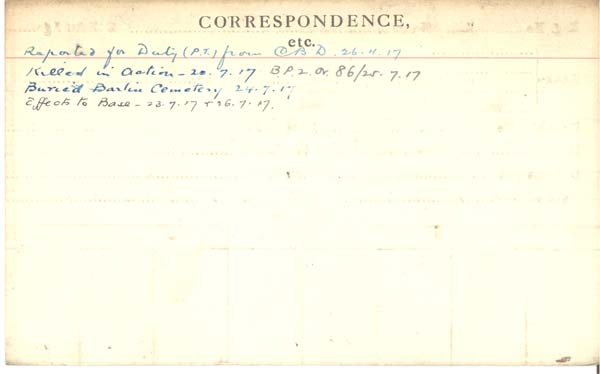 CORRESPONDENCE,
etc.
Reported for Duty (P.T.) from C B D. 26.4.17
Killed in action - 20.7.17 B.P.2. Or. 86/25.7.17
Buried Barlin Cemetery 24.7.17
Effects to Base - 23.7.17 & 26.7.17.